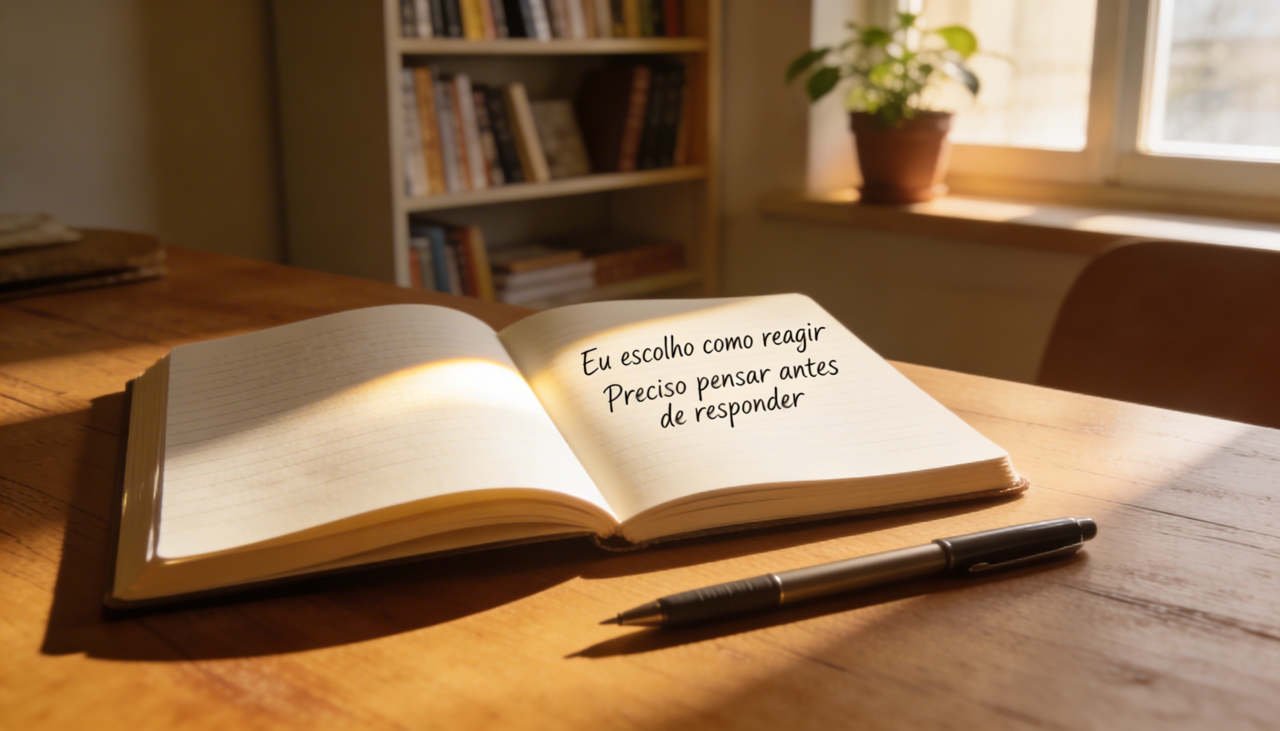 Eu escolho como reagir
Preciso pensar antes
de responder